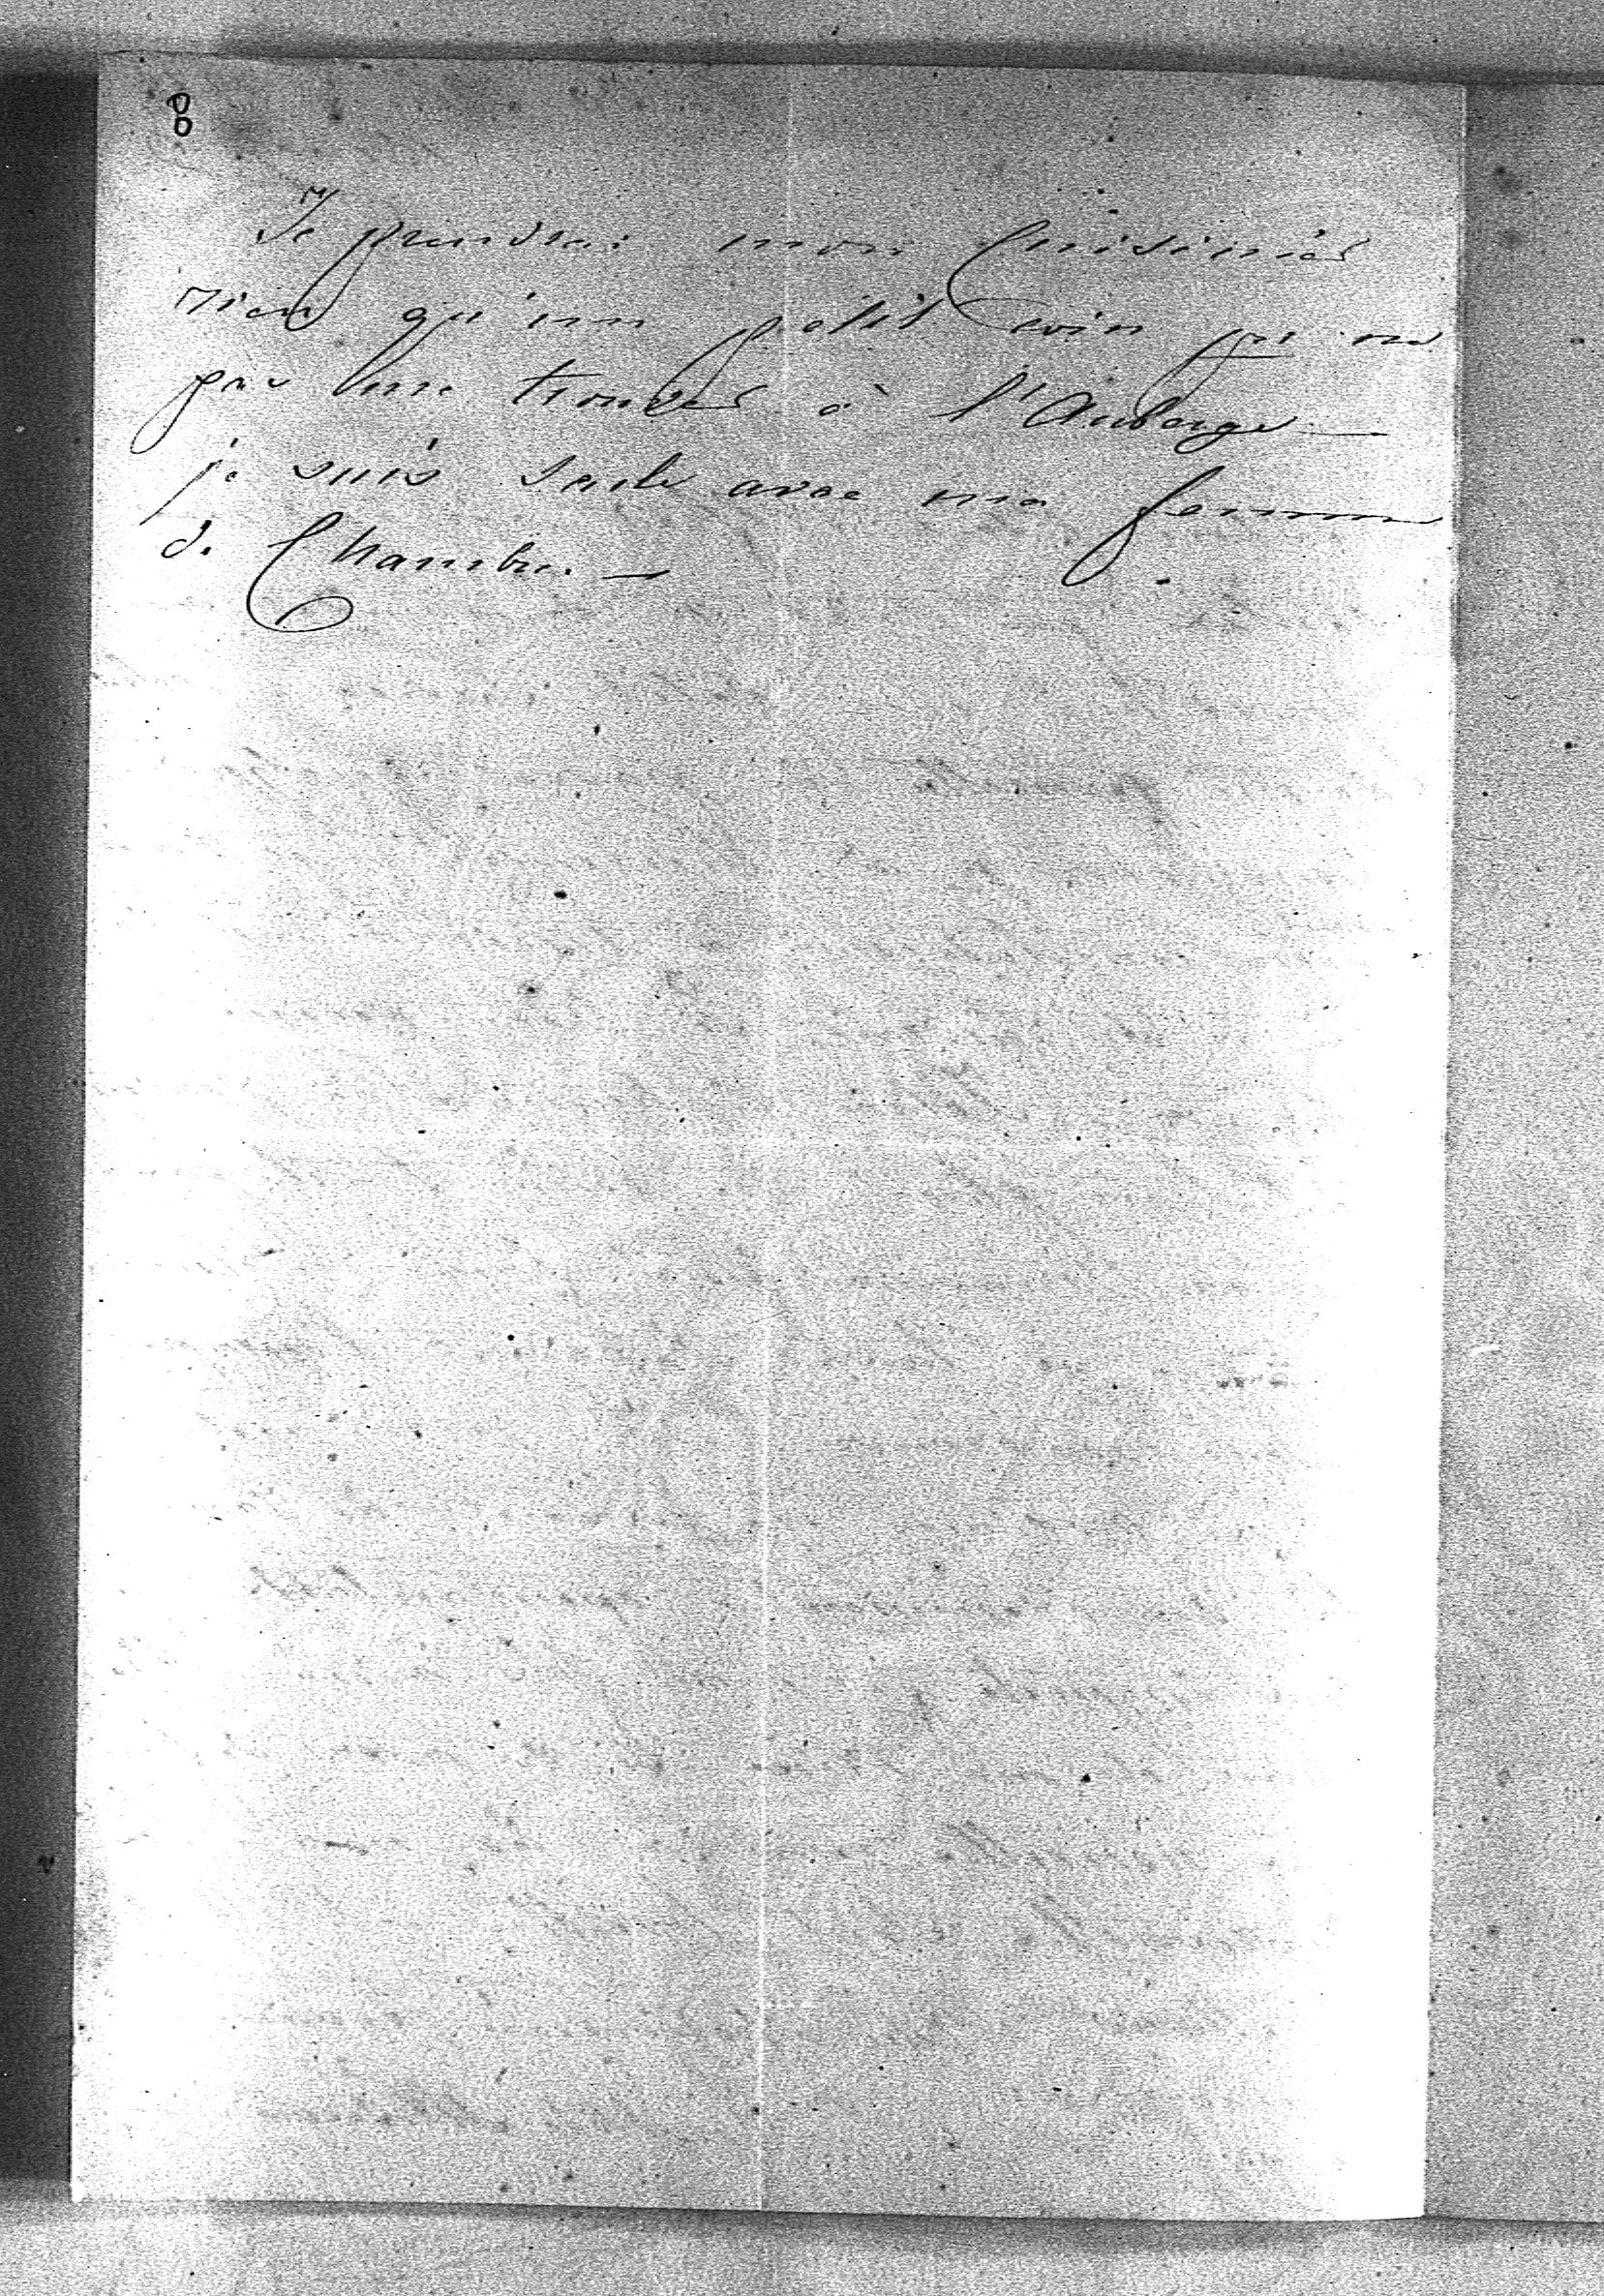 8
Je prendrai mon Cuisinier
rien qu'un petit coin pr ne
pas me trouver à l'Auberge —
je suis seule avec ma femme
de Chambre. —